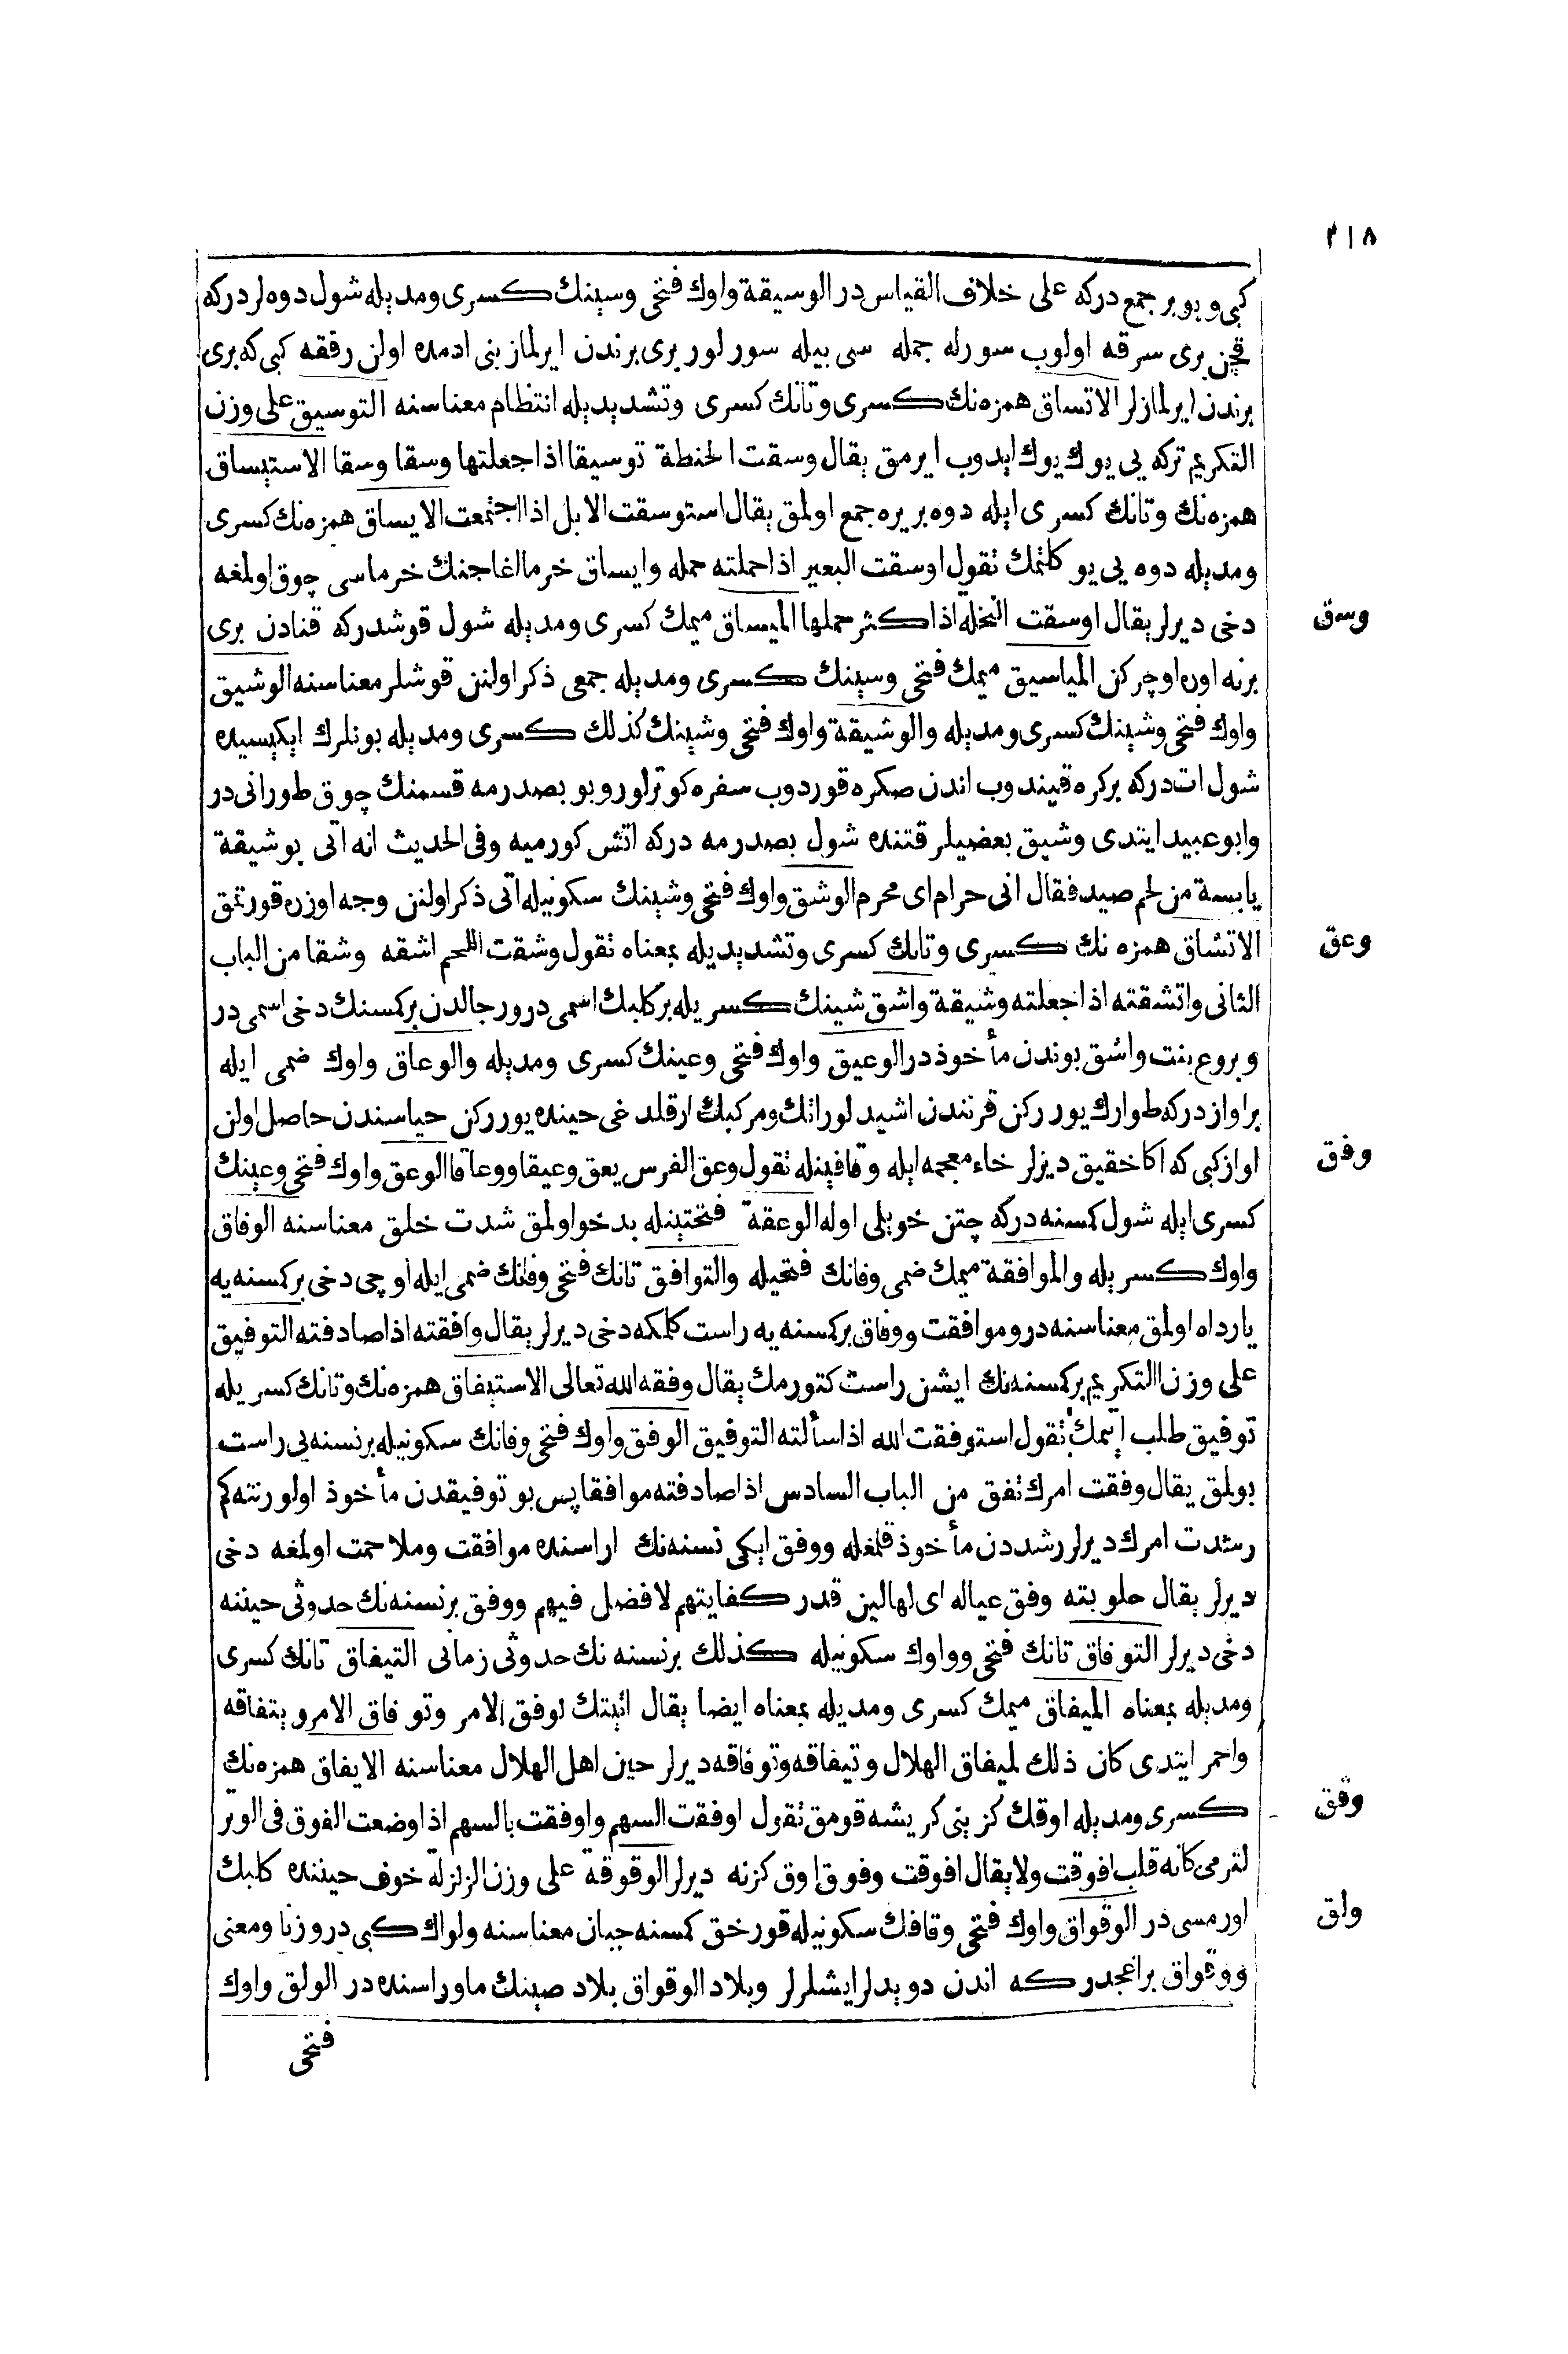 ٢١٨
كبى و بو بر جمع دركه على خلاف القياس در الوسيقة واوك فتحى وسينك كسرى ومديله شول دوه لر دركه
قچن برى سرقه اولوب سورله جمله سى بيله سورلور برى برندن ايرلماز بنى ادمده اولن رفقه كبى كه برى
برندن ايرلمازلر الاتساق همزه نك كسرى وتانك كسرى وتشديديله انتظام معناسنه التوسيق على وزن
التكريم تركه يى يوك يوك ايدوب ايرمق يقال وسقت الحنطة توسيقا اذا جعلتها وسقا وسقا الاستيساق
همزه نك وتانك كسرى ايله دوه بريره جمع اولمق يقال استوسقت الابل اذا اجتمعت الايساق همزه نك كسرى
ومديله دوه يى يوكلتمك تقول اوسقت البعير اذا حملته حمله وايساق خرما اغاجنك خرماسى چوق اولمغه
دخى ديرلر يقال اوسقت النخله اذا كثر حملها الميساق ميمك كسرى ومديله شول قوشدركه قنادن برى
وسق
برنه اوره اوچركن المياسيق ميمك فتحى وسينك كسرى ومديله جمعى ذكر اولنن قوشلر معناسنه الوشيق
واوك فتحى وشينك كسرى ومديله والوشيقة واوك فتحى وشينك كذلك كسرى ومديله بونلرك ايكيسيده
شول ات دركه بركره قيندوب اندن صكره قوردوب سفره كوترلور وبو بصدرمه قسمنك چوق طورانى در
وابو عبيد ايتدى وشيق بعضيلر قتنده شول بصدرمه دركه اتش كورميه وفى الحديث انه اتى بوشيقة
يابسة من لحم صيد فقال انى حرام اى محرم الوشق واوك فتحى وشينك سكونيله اتى ذكر اولنن وجه اوزره قورتمق
الاتشاق همزه نك كسرى وتانك كسرى وتشديديله بمعناه تقول وشقت اللحم اشقه وشقا من الباب
وعق
الثانى واتشقته اذا جعلته وشيقة واشق شينك كسريله بر كلبك اسمى در ورجالدن بر كمسنك دخى اسمى در
وبروع بنت واشق بوندن مأخوذ در الوعيق واوك فتحى وعينك كسرى ومديله والوعاق واوك ضمى ايله
بر اواز دركه طوارك يورركن قرنندن اشيدلور اتك ومركبك ارقلدغى حينده يورركن حياسندن حاصل اولن
اواز كبى كه اكا خقيق ديرلر خاء معجمه ايله وقافينله تقول وعق الفرس يعق وعيقا ووعاقا الوعق واوك فتحى وعينك
وفق
كسرى ايله شول كمسنه دركه چتن خويلى اوله الوعقة فتحتينله بدخو اولمق شدت خلق معناسنه الوفاق
واوك كسريله والموافقة ميمك ضمى وفانك فتحيله والتوافق تانك فتحى وفانك ضمى ايله اوچى دخى بر كمسنه يه
يارداه اولمق معناسنه در وموافقت ووفاق بر كمسنه يه راست كلمكه دخى ديرلر يقال وافقته اذا صادفته التوفيق
على وزن التكريم بر كمسنه نك ايشن راست كتورمك يقال وفقه الله تعالى الاستيفاق همزه نك وتانك كسريله
توفيق طلب ايتمك تقول استوفقت الله اذا سألته التوفيق الوفق واوك فتحى وفانك سكونيله بر نسنه يى راست
بولمق يقال وفقت امرك تفق من الباب السادس اذا صادفته موافقا پس بو توفيقدن مأخوذ اولور نته كم
رشدت امرك ديرلر رشددن مأخوذ قلمغله ووفق ايكى نسنه نك اراسنده موافقت وملاحمت اولمغه دخى
ديرلر يقال حلوبته وفق عياله اى لها لبن قدر كفايتهم لا فضل فيهم ووفق بر نسنه نك حدوثى حيننه
دخى ديرلر التوفاق تانك فتحى وواوك سكونيله كذلك بر نسنه نك حدوثى زمانى التيفاق تانك كسرى
ومديله بمعناه الميفاق ميمك كسرى ومديله بمعناه ايضا يقال اتيتك لوفق الامر وتوفاق الامر وبتفاقه
واحمر ايتدى كان ذلك لميفاق الهلال وتيفاقه وتوفاقه ديرلر حين اهل الهلال معناسنه الايفاق همزه نك
كسرى ومديله اوقك كزينى كريشه قومق تقول اوفقت السهم واوفقت بالسهم اذا وضعت الفوق فى الوتر
وقق
لترمى كانه قلب افوقت ولا يقال افوقت وفوق اوق كزنه ديرلر الوقوقة على وزن الزلزلة خوف حيننده كلبك
اورمسى در الوقواق واوك فتحى وقافك سكونيله قورخق كمسنه جبان معناسنه ولواك كبى در وزنا ومعنى
ولق
ووقواق بر اغجدركه اندن دويدلر ايشلرلر وبلاد الوقواق بلاد صينك ماوراسنده در الولق واوك
فتحى